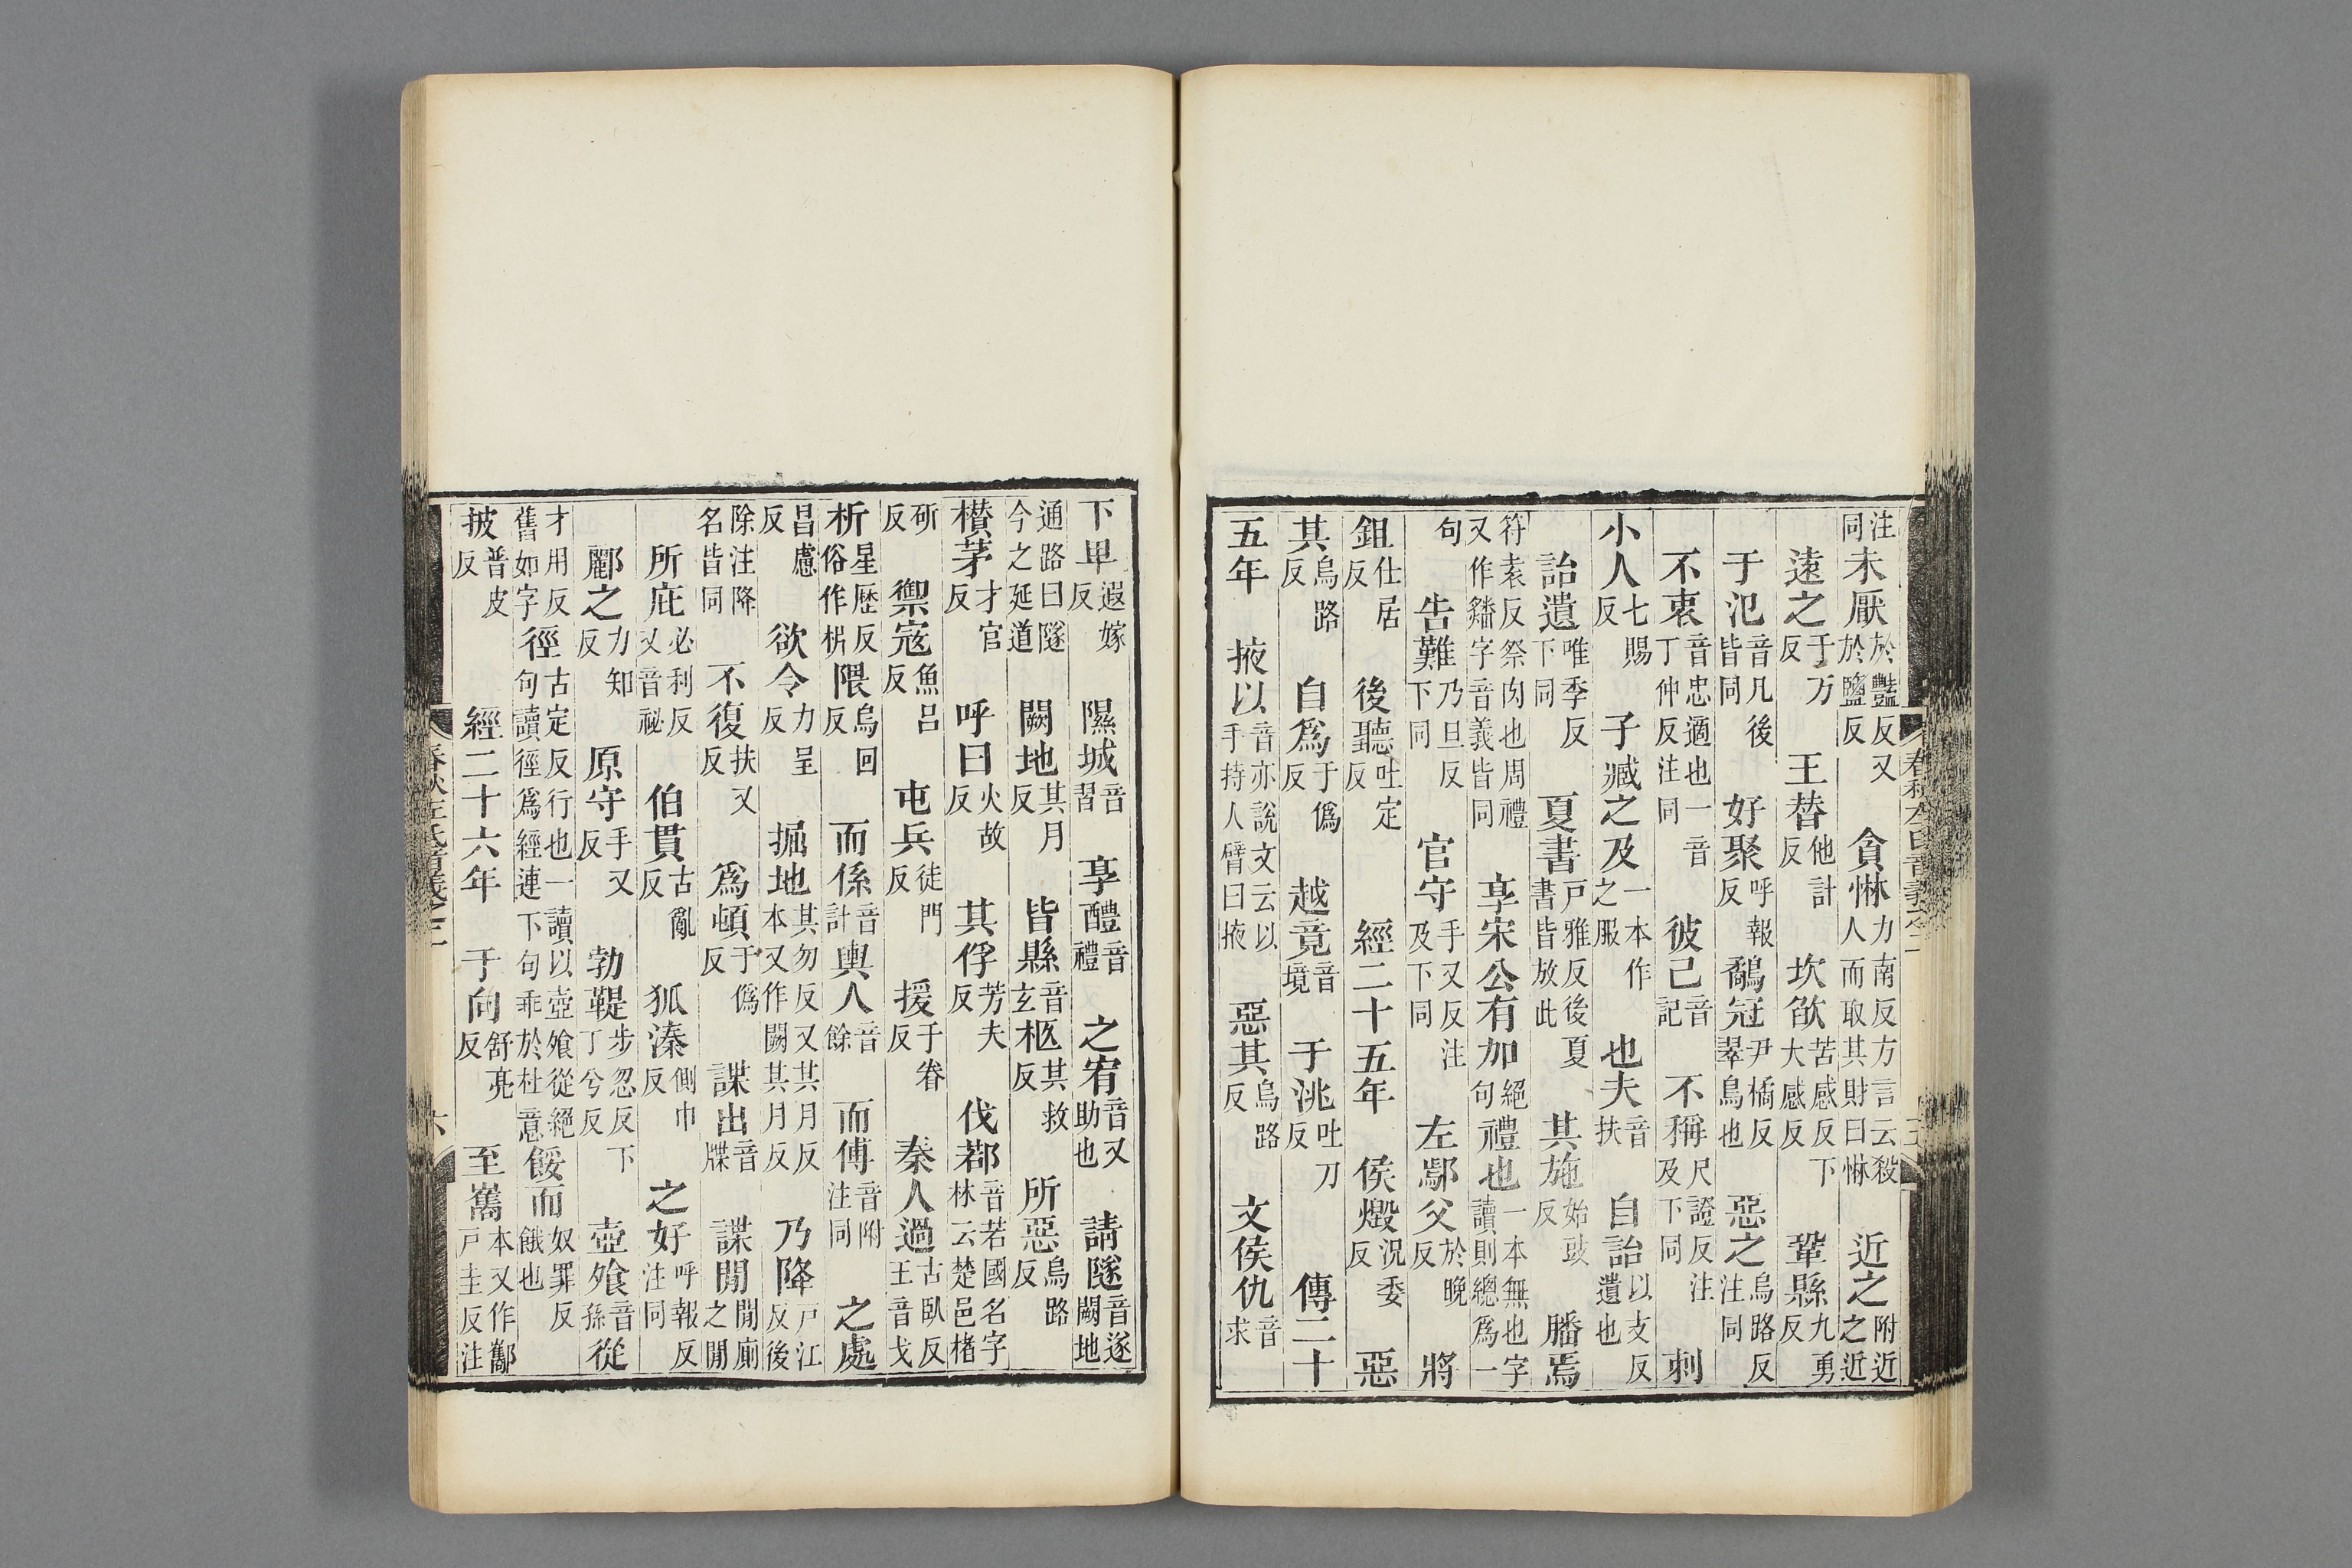 注同未厭於豔反又於鹽反貪惏力南反方言云殺人而取其財曰惏近之附近之近
遠之于万反王替他計反坎欿苦感反下大感反鞏縣九勇反
于氾音凡後皆同好聚呼報反鷸冠尹橘反翠鳥也惡之烏路反注同
不衷音忠適也一音丁仲反注同彼己音記不稱尺證反注及下同刺
小人七賜反子臧之及一本作之服也夫音扶自詒以支反遺也
詒遺唯季反下同夏書戶雅反後夏書皆放此其施始豉反膰焉
符袁反祭肉也周禮又作䊩字音義皆同享宋公有加絕句禮也一本無也字讀則總爲一
句告難乃旦反下同官守手又反注及下同左鄢父於晚反將
鉏仕居反後聽吐定反經二十五年侯燬況委反惡
其烏路反自爲于僞反越竟音境于洮吐刀反傳二十
五年掖以音亦說文云以手持人臂曰掖惡其烏路反文侯仇音求
下卑遐嫁反隰城音習享醴音禮之宥音又助也請隧音遂闕地
通路曰隧今之延道闕地其月反皆縣音玄柩其救反所惡烏路反
欑茅才官反呼曰火故反其俘芳夫反伐鄀音若國名字林云楚邑楮
斫反禦寇魚呂反屯兵徒門反援于眷反秦人過古臥反王音戈
析星歷反俗作枿隈烏回反而係音計輿人音餘而傅音附注同之處
昌慮反欲令力呈反掘地其勿反又其月反本又作闕其月反乃降戶江反後
除注降名皆同不復扶又反爲頓于僞反諜出音牒諜閒閒廁之閒
所庇必利反又音祕伯貫古亂反狐溱側巾反之好呼報反注同
酈之力知反原守手又反勃鞮步忽反下丁兮反壺飱音孫從
才用反舊如字徑古定反行也一讀以壺飱從絕句讀徑爲經連下句乖於杜意餒而奴罪反餓也
披普皮反經二十六年于向舒亮反至巂本又作酅戶圭反注
春秋左氏音義之二
六